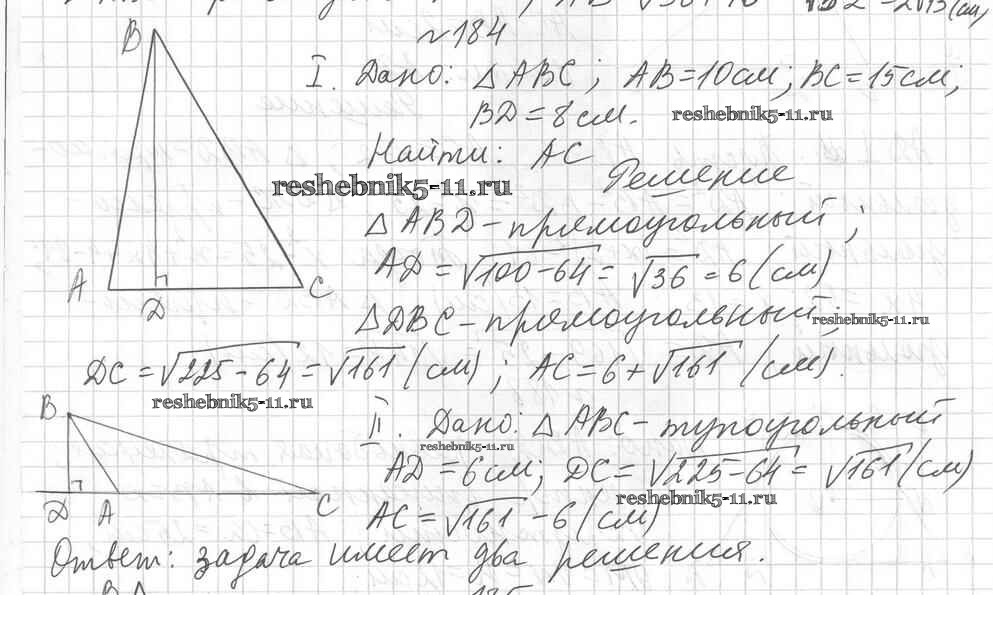 AB √36+16 √52 = 2√13 (см)
№184
B
I. Дано: △ABC; AB=10см; BC=15см;
BD=8см. reshebnik5-11.ru
Найти: AC
reshebnik5-11.ru Решение
△ABD-прямоугольный;
AD=√100-64=√36=6(см)
A D C
△DBC-прямоугольный; reshebnik5-11.ru
DC=√225-64=√161(см); AC=6+√161 (см).
reshebnik5-11.ru
B
II. Дано: △ABC-тупоугольный
reshebnik5-11.ru
AD=6см; DC=√225-64=√161(см)
reshebnik5-11.ru
D A C
AC=√161-6(см)
Ответ: задача имеет два решения.